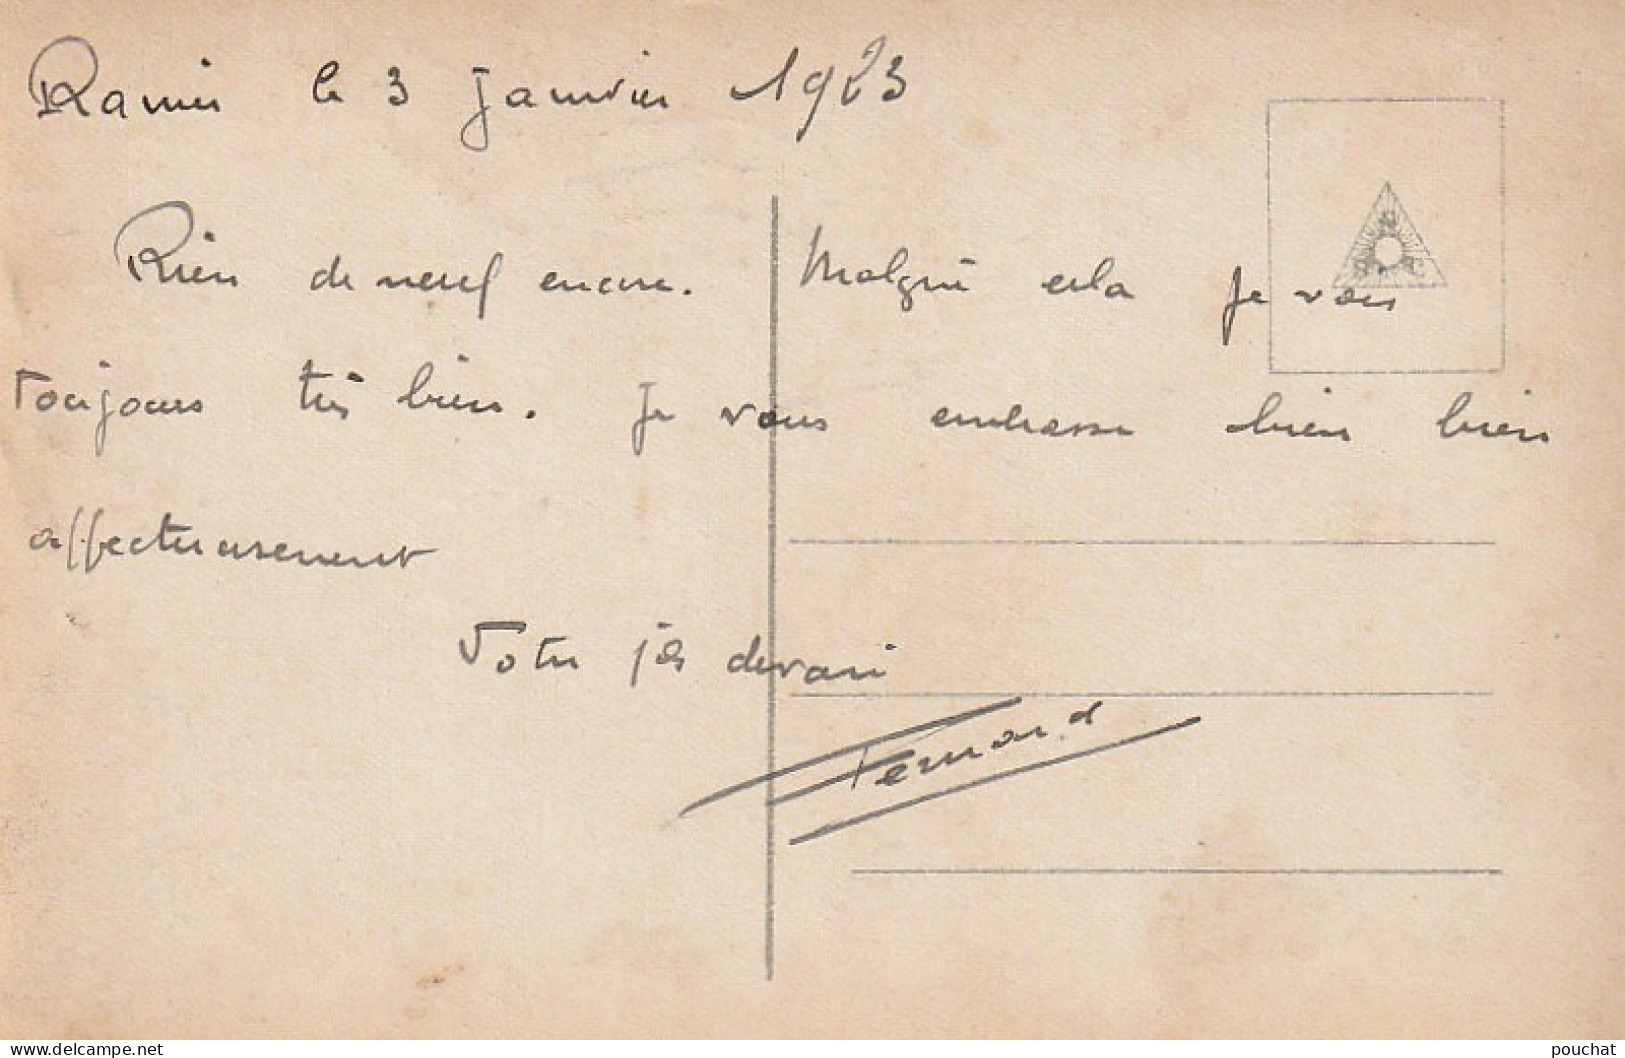 le 3 Janvier 1923
Rien de neuf encore. Malgré cela je vous
toujours très bien. Je vous embrasse bien bien
affectueusement
Votre fils dévoué
Fernand
https://www.delcampe.net
pouchat